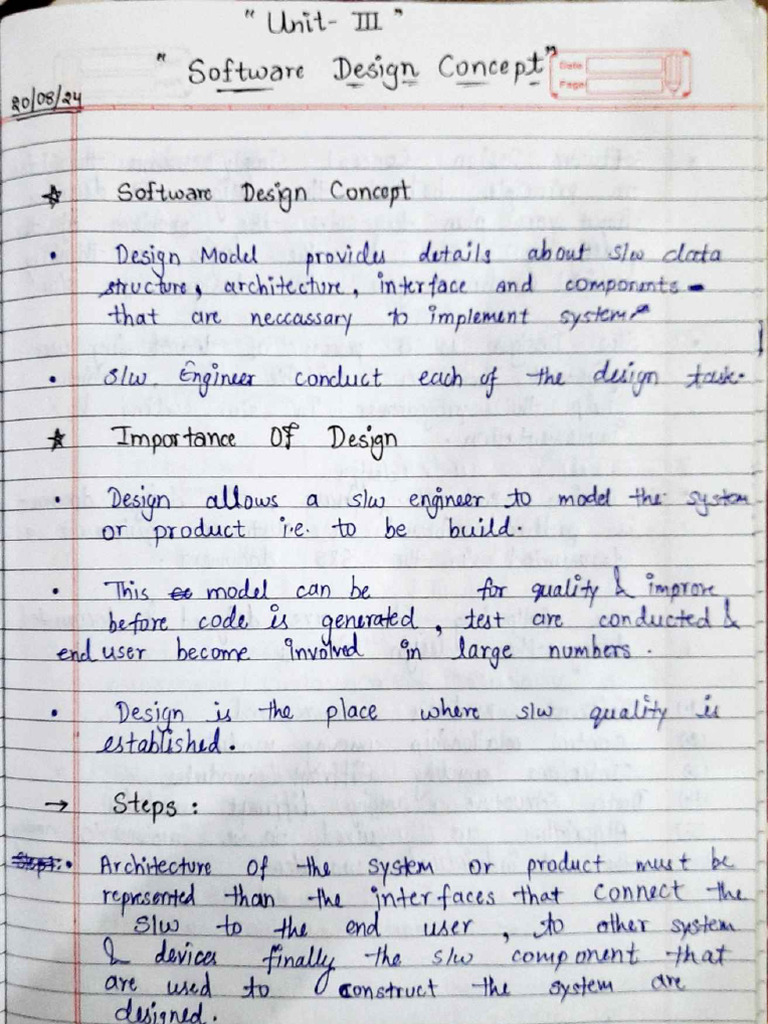 " Unit- III "
" Software Design Concept "
Date
Page
20/08/24
☆ Software Design Concept
• Design Model provides details about s/w data
structure, architecture, interface and components -
that are neccassary to implement system.
• S/w Engineer conduct each of the design task.
☆ Importance Of Design
• Design allows a s/w engineer to model the system
or product i.e. to be build.
• This model can be for quality & improve
before code is generated, test are conducted &
end user become involved in large numbers.
• Design is the place where s/w quality is
established.
→ Steps :
• Architecture Of the system or product must be
represented than the interfaces that connect the
S/w to the end user, to other system
& devices finally the s/w component that
are used to construct the system are
designed.